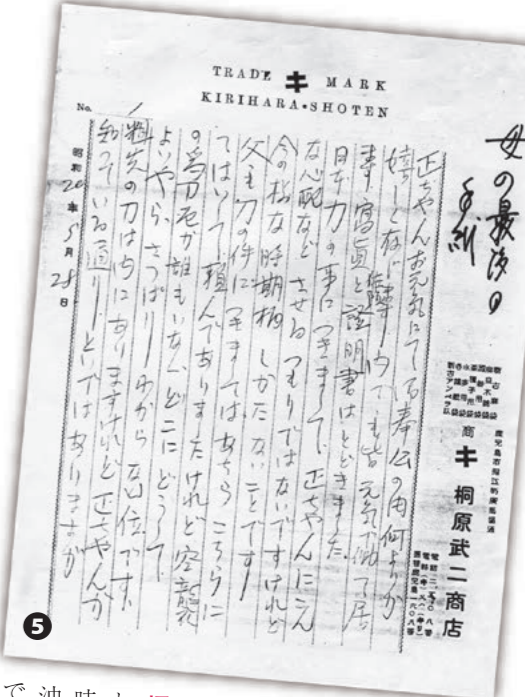 TRADE キ MARK
KIRIHARA・SHOTEN
No.
母の最後の
手紙
鹿児島市堀江町廣馬場通
商 キ 桐原武二商店
正ちやんお元気にて御奉公の由何よりか
嬉しく存じます 内でも皆元気で働て居
ます 寫真と證明書はとどきました
日本刀の事につきまして、正ちやんにこん
な心配など させるつもりではないですけれど
今の様な時期柄 しかたないことです
父も刀の件につきましてはあちらこちらに
てはいして頼んでありましたけれど空襲
の為刀屋が誰もいなくどこにどうして
よいやら さつぱりわからない位です、
粗末の刀は内にありますけれど正ちやんが
知つている通り といではありますが
昭和20年5月28日
❺